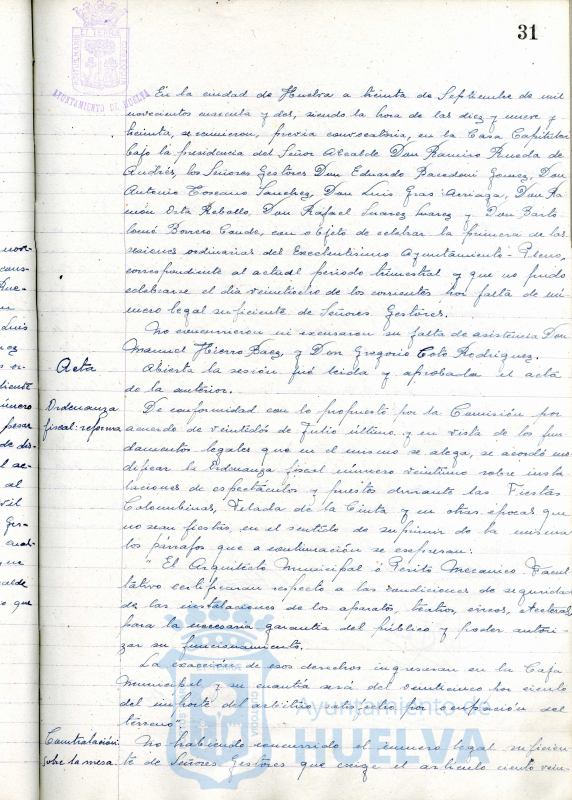 31
AYUNTAMIENTO DE HUELVA
En la ciudad de Huelva a treinta de Septiembre de mil
novecientos cuarenta y dos, siendo la hora de las diez y nueve y
treinta, se reunieron, previa convocatoria, en la Casa Capitular
bajo la presidencia del Señor Alcalde Don Ramiro Rueda de
Andrés, los Señores Gestores Don Eduardo Bacedoni Gomez, Don
Antonio Toscano Sanchez, Don Luis Gras Arriaga, Don Ra
món Orta Rebollo, Don Rafael Suarez Suarez y Don Barto
lomé Borrero Conde, con objeto de celebrar la primera de las
sesiones ordinarias del Excelentisimo Ayuntamiento-Pleno,
correspondiente al actual periodo trimestral y que no pudo
celebrarse el dia veintiocho de los corrientes, por falta de nú
mero legal suficiente de Señores Gestores.
No concurrieron ni excusaron su falta de asistencia Don
Manuel Hierro Baez, y Don Gregorio Coto Rodriguez.
Acta
Abierta la sesión fué leida y aprobada el acta
de la anterior.
Ordenanza
fiscal: reforma
De conformidad con lo propuesto por la Comisión por
acuerdo de veintidós de Julio último y en vista de los fun
damentos legales que en el mismo se alega, se acordó mo
dificar la Ordenanza fiscal número veintiuno sobre insta
laciones de espectáculos y puestos durante las Fiestas
Colombinas, Velada de la Cinta y en otras épocas que
no sean fiestas, en el sentido de suprimir de la misma
los párrafos que a continuación se expresan:
"El Arquitecto Municipal ó Perito Mecanico Facul
tativo certificaran respecto a las condiciones de segurida
de las instalaciones de los aparatos, teatros, circos, etcetera
para la necesaria garantia del público y poder autori-
zar su funcionamiento.
La exacción de esos derechos ingresaran en la Caja
Municipal y su cuantía será del veinticinco por ciento
del importe del arbitrio por ocupación del
terreno".
Contratación
sobre la mesa
No habiendo concurrido el número legal suficien
te de Señores Gestores que exige el articulo ciento vein-
Ayuntamiento de
HUELVA